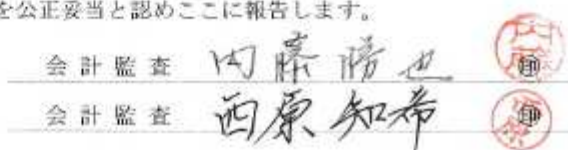 を公正妥当と認めここに報告します。
会計監査 内藤勝也 ㊞
会計監査 西原知希 ㊞